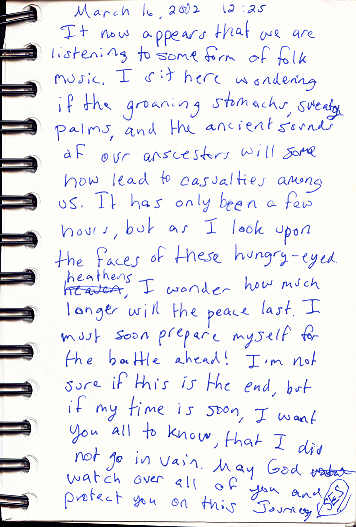 March 16, 2002 12:25
It now appears that we are
listening to some form of folk
music. I sit here wondering
if the groaning stomachs, sweaty
palms, and the ancient sounds
of our anscestors will some
how lead to casualties among
us. It has only been a few
hours, but as I look upon
the faces of these hungry-eyed
heathens
heaven, I wonder how much
longer will the peace last. I
must soon prepare myself for
the battle ahead! I'm not
sure if this is the end, but
if my time is soon, I want
you all to know, that I did
not go in vain. May God
watch over all of you and
protect you on this Journey